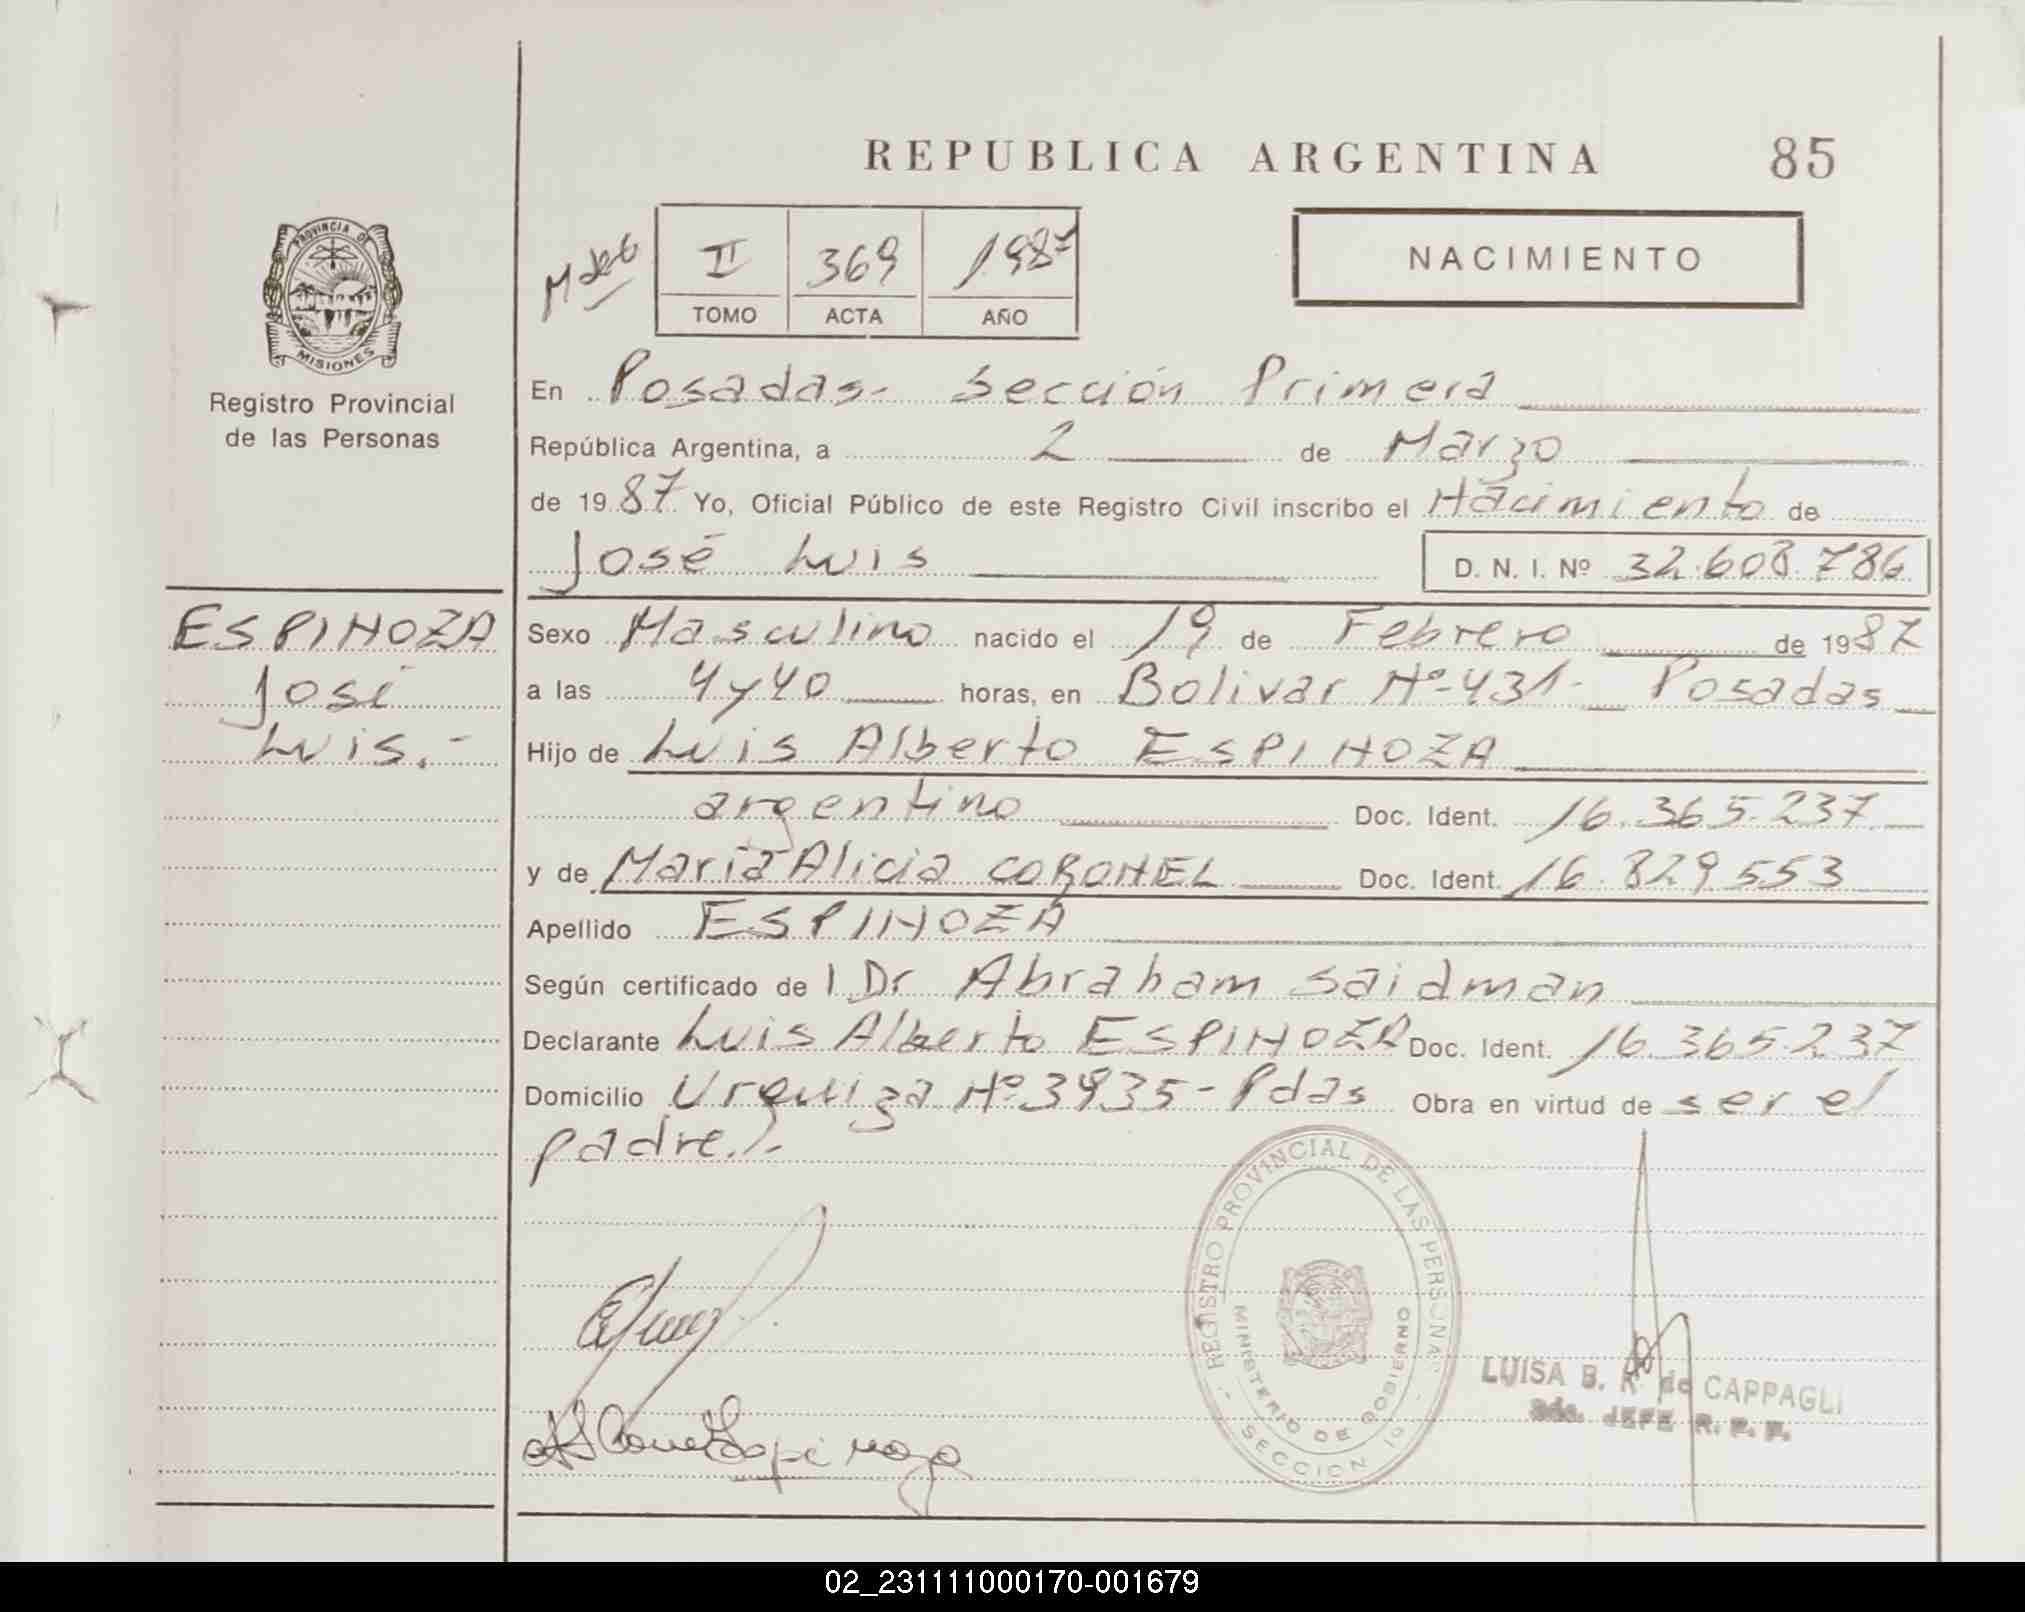 REPUBLICA ARGENTINA 85
PROVINCIA DE
MISIONES
Registro Provincial
de las Personas
II 369 1987
TOMO ACTA AÑO
NACIMIENTO
En Posadas- Sección Primera
República Argentina, a 2 de Marzo
de 1987 Yo, Oficial Público de este Registro Civil inscribo el Nacimiento de
José Luis D. N. I. Nº 32.608.786
ESPINOZA
José
Luis.-
Sexo Masculino nacido el 19 de Febrero de 1987
a las 4 y 40 horas, en Bolivar Nº-431- Posadas
Hijo de Luis Alberto ESPINOZA
argentino Doc. Ident. 16.365.237
y de Maria Alicia CORONEL Doc. Ident. 16.829.553
Apellido ESPINOZA
Según certificado de l Dr Abraham Saidman
Declarante Luis Alberto ESPINOZA Doc. Ident. 16.365.237
Domicilio Urquiza Nº 3935- Pdas Obra en virtud de ser el
padre.-
REGISTRO PROVINCIAL DE LAS PERSONAS
MINISTERIO DE GOBIERNO
SECCION 1º
LUISA B. R. de CAPPAGLI
JEFE R. P. P.
02_231111000170-001679